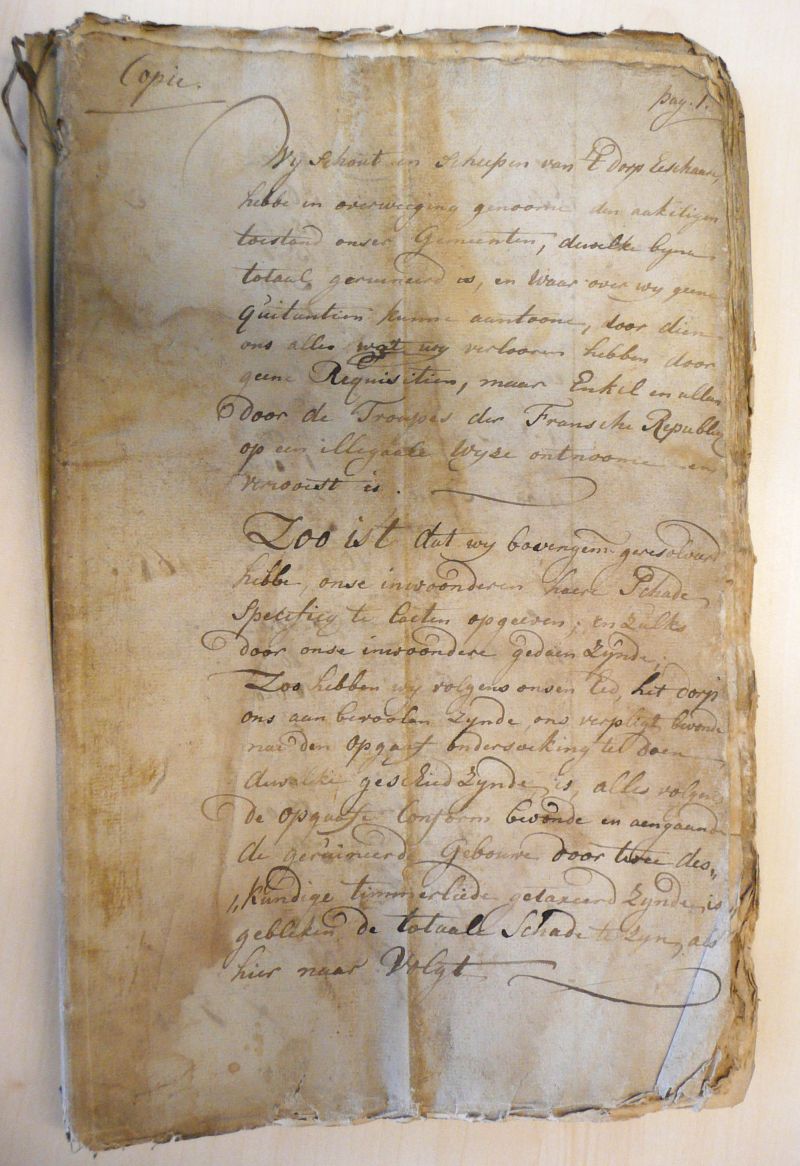 Copie.
pag. 1.
Wy Schout en Scheepen van 't dorp Eeschaare,
hebbe in overweeging genoome den aakeligen
toestand onser Gemeenten, dewelke byna
totaal geruineerd is, en waar over wy geene
Quitantien kunne aantoone, door dien
ons alles wat wy verlooren hebben door
geene Requisitien, maar Enkel en alleen
door de Troupes der Fransche Republiq
op een illegaale wyze ontnoome en
verwoest is.
Zoo ist dat wy bovengem. geresolveerd
hebbe, onse inwoonderen haere Schade
Specificq te laeten opgeeven; en zulks
door onse inwoondere gedaen zynde;
Zoo hebben wy volgens onsen Eed, het dorp
ons aan bevoolen zynde, ons verpligt bevonde
naar den opgaaf ondersoeking te doen
dewelke geschied zynde is, alles volgens
de opgaafe Conform bevonde en aengaande
de geruineerde Gebouwe door twee des„
„kundige timmerliede getaxeerd zynde, is
gebleken de totaale Schade te zyn, als
hier naar Volgt